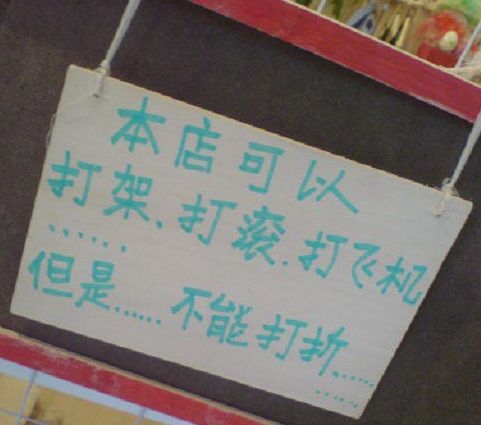 本店可以
打架、打滚、打飞机
......
但是...... 不能打折......
......